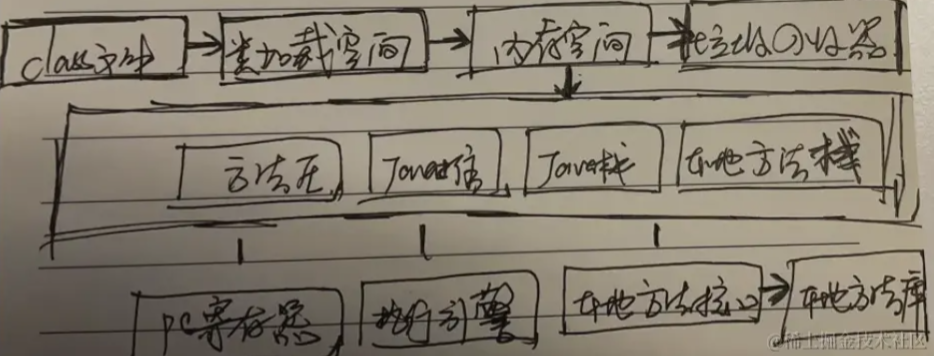 class文件 类加载空间 内存空间 垃圾回收器
方法区 Java堆 Java栈 本地方法栈
PC寄存器 执行引擎 本地方法接口 本地方法库
@稀土掘金技术社区